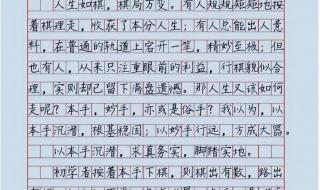 人生如棋，棋局万变。有人规规矩矩地按
着棋理走，收获了本分人生；有人总能出人意
料，在普通的轨道上宕开一笔，精妙至极；但
也有人，从来只注重眼前的利益，行棋貌似合
理，实则却已留下满盘遗憾。那人生又该如何
走呢？本手，妙手，亦或是俗手？我以为，以
本手沉潜，根基稳固；以妙手行远，方成大器。
以本手沉潜，求真务实，脚踏实地。
初学者按着本手下棋，则棋出有数，路出